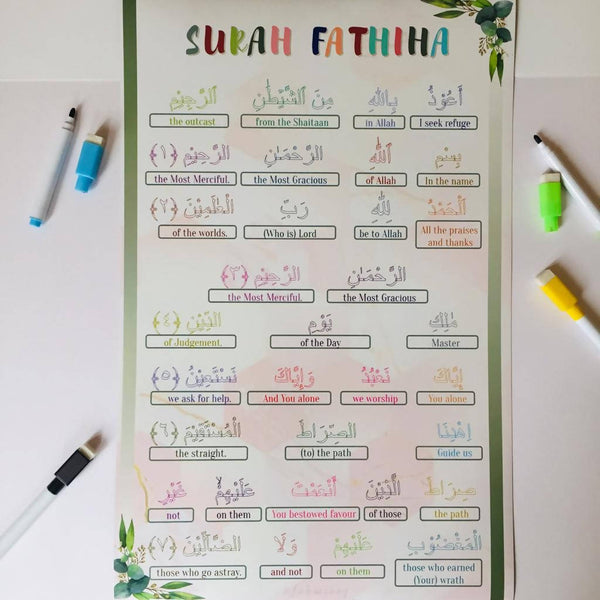 SURAH FATHIHA
أَعُوْذُ بِاللهِ مِنَ الشَّيْطٰنِ الرَّجِيْمِ
I seek refuge in Allah from the Shaitaan the outcast
بِسْمِ اللهِ الرَّحْمٰنِ الرَّحِيْمِ ﴿١﴾
In the name of Allah the Most Gracious the Most Merciful.
اَلْحَمْدُ لِلّٰهِ رَبِّ الْعٰلَمِيْنَ ﴿٢﴾
All the praises and thanks be to Allah (Who is) Lord of the worlds.
الرَّحْمٰنِ الرَّحِيْمِ ﴿٣﴾
the Most Gracious the Most Merciful.
مٰلِكِ يَوْمِ الدِّيْنِ ﴿٤﴾
Master of the Day of Judgement.
إِيَّاكَ نَعْبُدُ وَإِيَّاكَ نَسْتَعِيْنُ ﴿٥﴾
You alone we worship And You alone we ask for help.
اِهْدِنَا الصِّرَاطَ الْمُسْتَقِيْمَ ﴿٦﴾
Guide us (to) the path the straight.
صِرَاطَ الَّذِيْنَ أَنْعَمْتَ عَلَيْهِمْ غَيْرِ
the path of those You bestowed favour on them not
الْمَغْضُوْبِ عَلَيْهِمْ وَلَا الضَّالِّيْنَ ﴿٧﴾
those who earned (Your) wrath on them and not those who go astray.